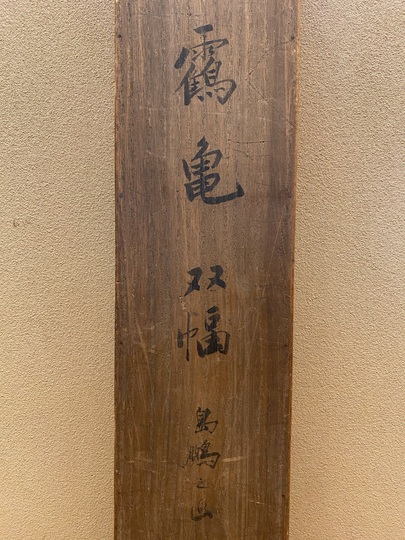 靍亀双幅
島鵬之画